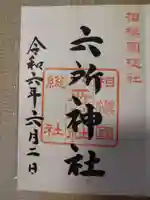 相模國総社
六所神社
相模國
総社
令和六年六月二日